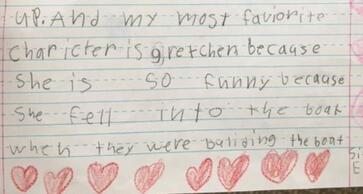 up. And my most faviorite
charicter is gretchen because
she is so funny because
she fell into the boat
when they were
the boat